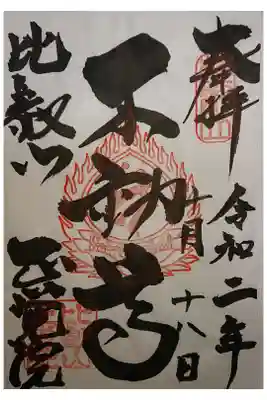 奉拝
令和二年
十月十八日
不動尊
比叡山
正覚院